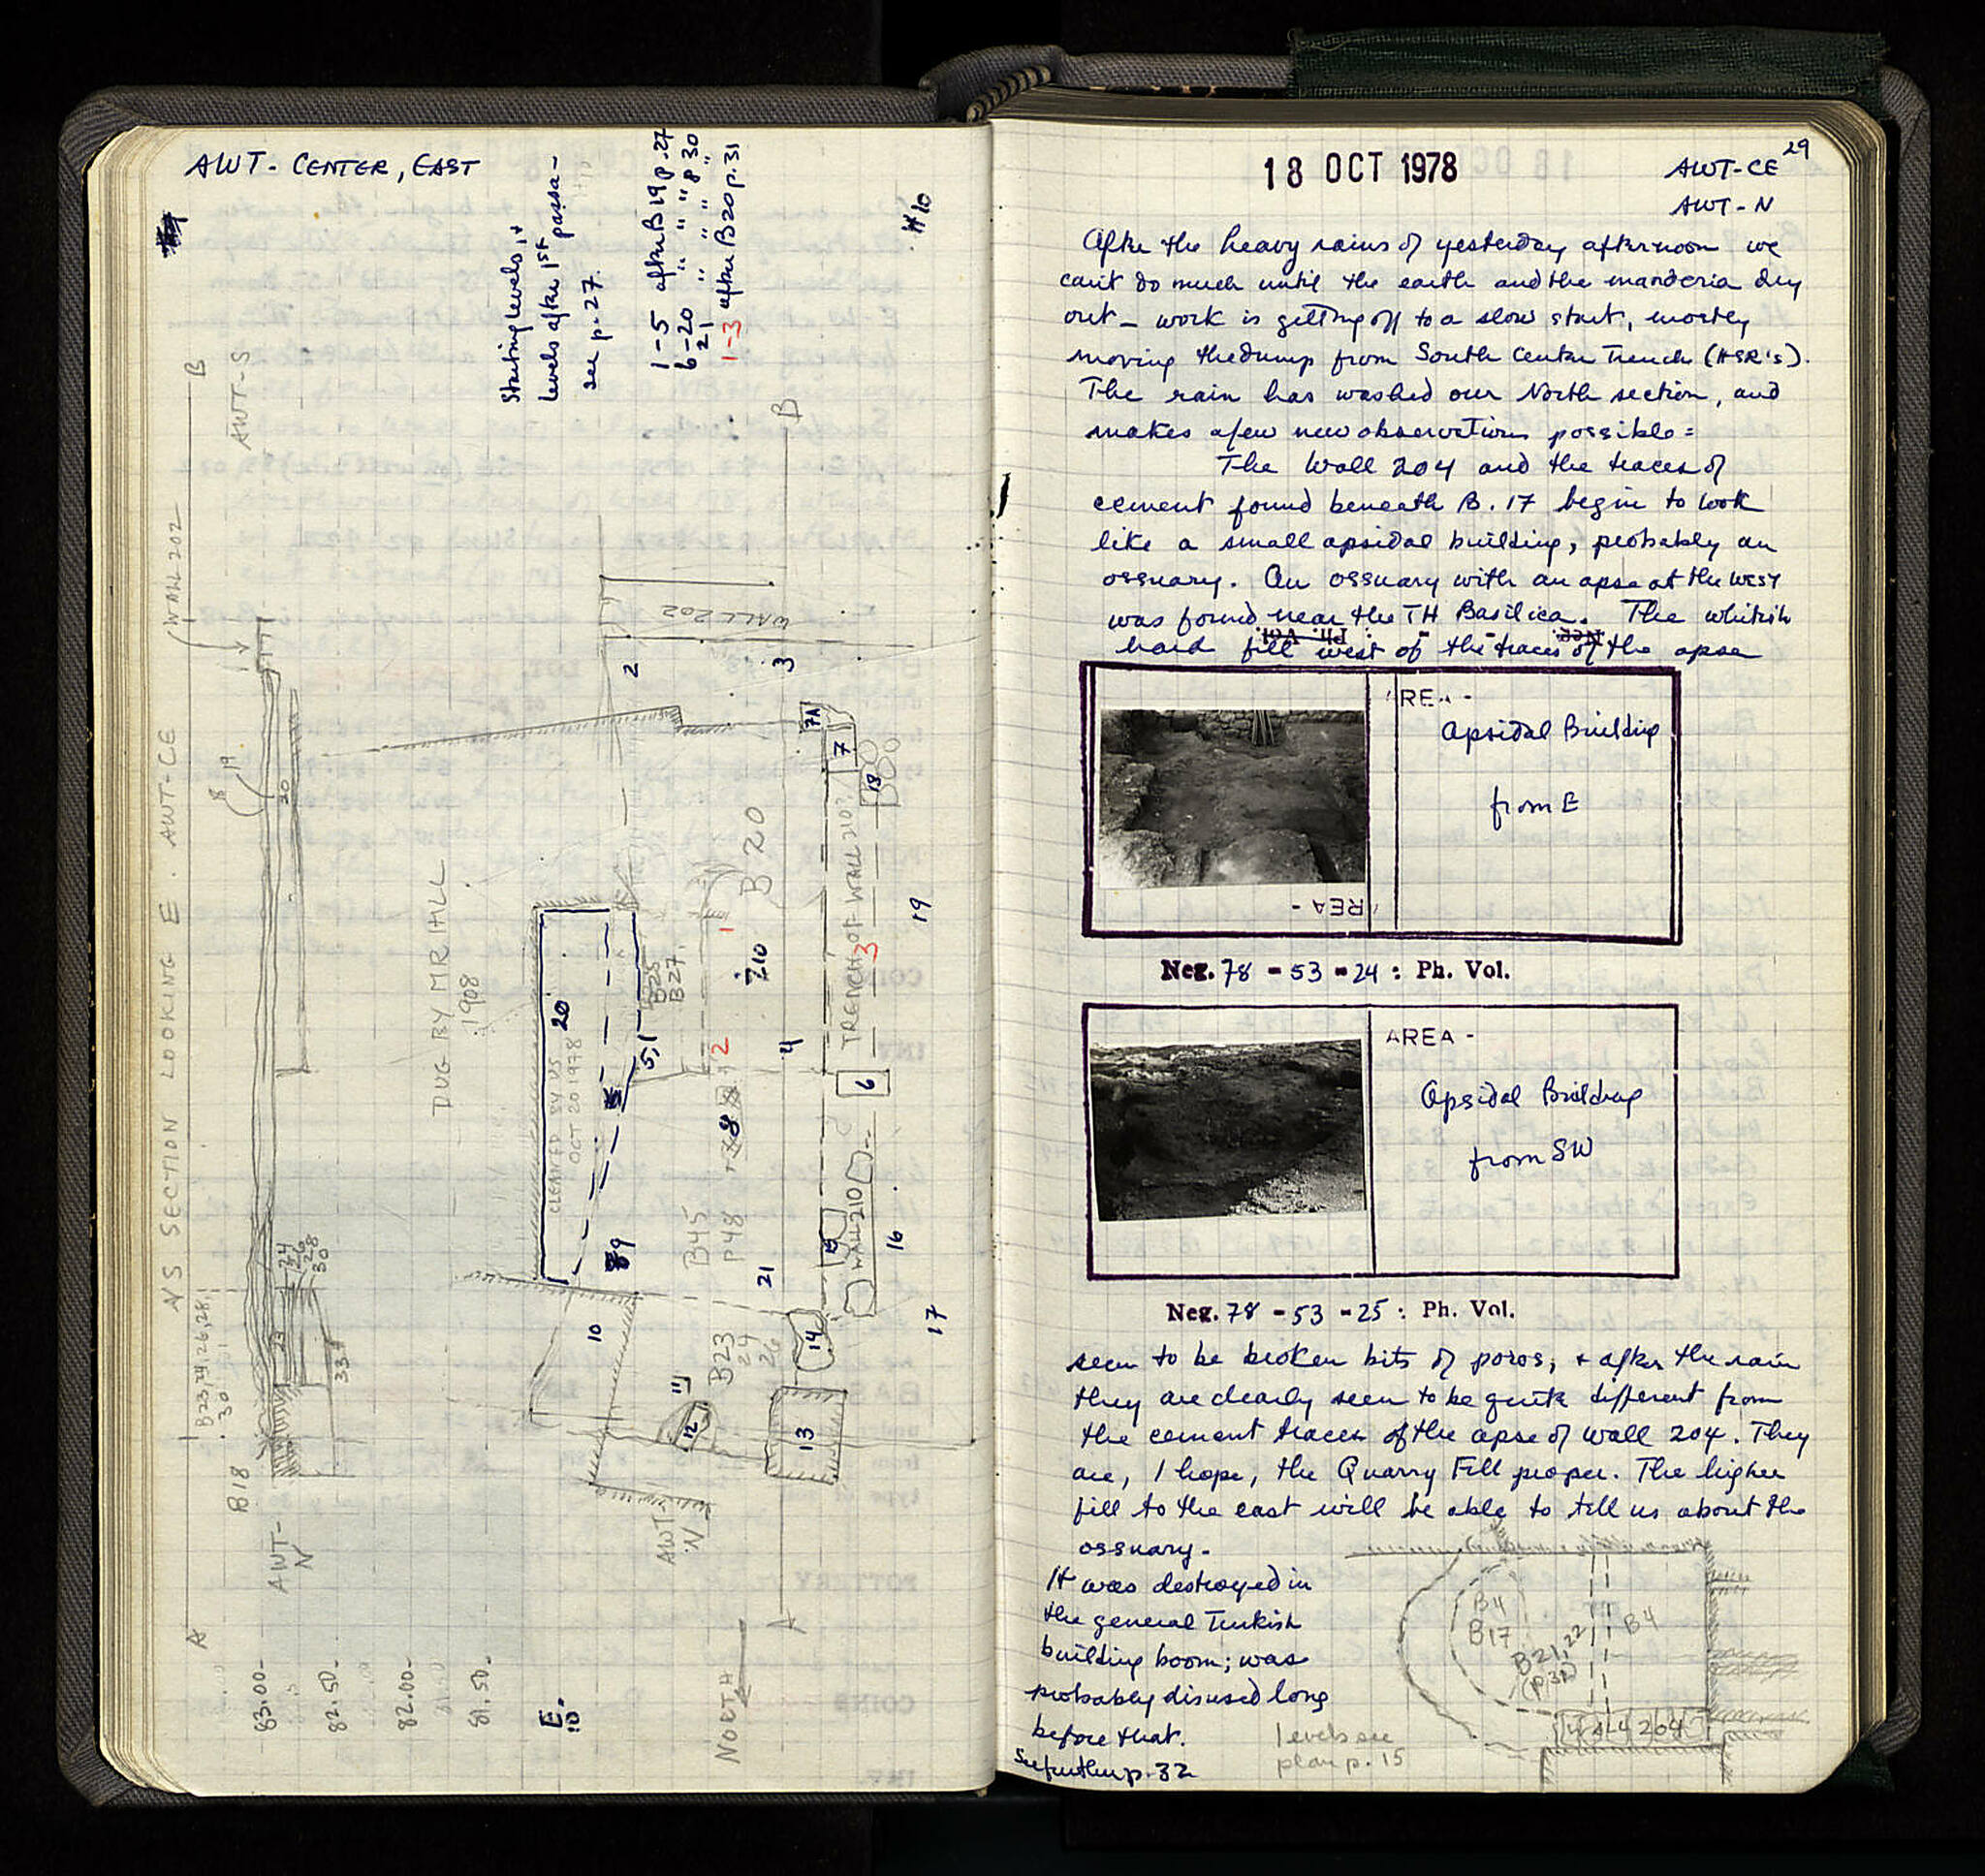 AWT- CENTER, EAST
Starting levels, +
levels after 1ST passa-
see p. 27.
1-5 after B19 p. 27
6-20 " " " 8 30
21 " " " "
1-3 after B20 p. 31
#10
NS SECTION LOOKING E. AWT-CE
A
B
WALL 202
AWT-S
8
19
20
DUG BY MR HILL
1908
B23,24,26,28,
30
24
26
28
30
23
33
B18
AWT-
N
83.00-
82.50-
82.00-
81.50-
E.
10
B
WALL 202
2
3
7A
7
18
TRENCH OF WALL 210?
B20
20
CLEANED BY US
OCT 20 1978
B25
B27
5,1
1
210
3
19
2
4
6
8
9
B45
P48
15
WALL 210
16
21
10
B23
24
26
14
17
11
12
13
AWT-
N
A
NORTH
29
18 OCT 1978
AWT-CE
AWT-N
After the heavy rains of yesterday afternoon we
can't do much until the earth and the manderia dry
out - work is getting off to a slow start, mostly
moving the dump from South Center Trench (HSR's).
The rain has washed our North section, and
makes a few new observations possible:
The Wall 204 and the traces of
cement found beneath B.17 begin to look
like a small apsidal building, probably an
ossuary. An ossuary with an apse at the WEST
was found near the TH Basilica. The whitish
Neg. : Ph. Vol.
hard fill west of the traces of the apse
AREA -
Apsidal Building
from E
AREA -
Neg. 78 - 53 - 24 : Ph. Vol.
AREA -
Apsidal Building
from SW
Neg. 78 - 53 - 25 : Ph. Vol.
seem to be broken bits of poros, + after the rain
they are clearly seen to be quite different from
the cement traces of the apse of wall 204. They
are, I hope, the Quarry Fill proper. The higher
fill to the east will be able to tell us about the
ossuary.
It was destroyed in
the general Turkish
building boom; was
probably disused long
before that.
See further p. 32
levels see
plan p. 15
B4
B17
B21, 22
(p. 32)
B4
WALL 204